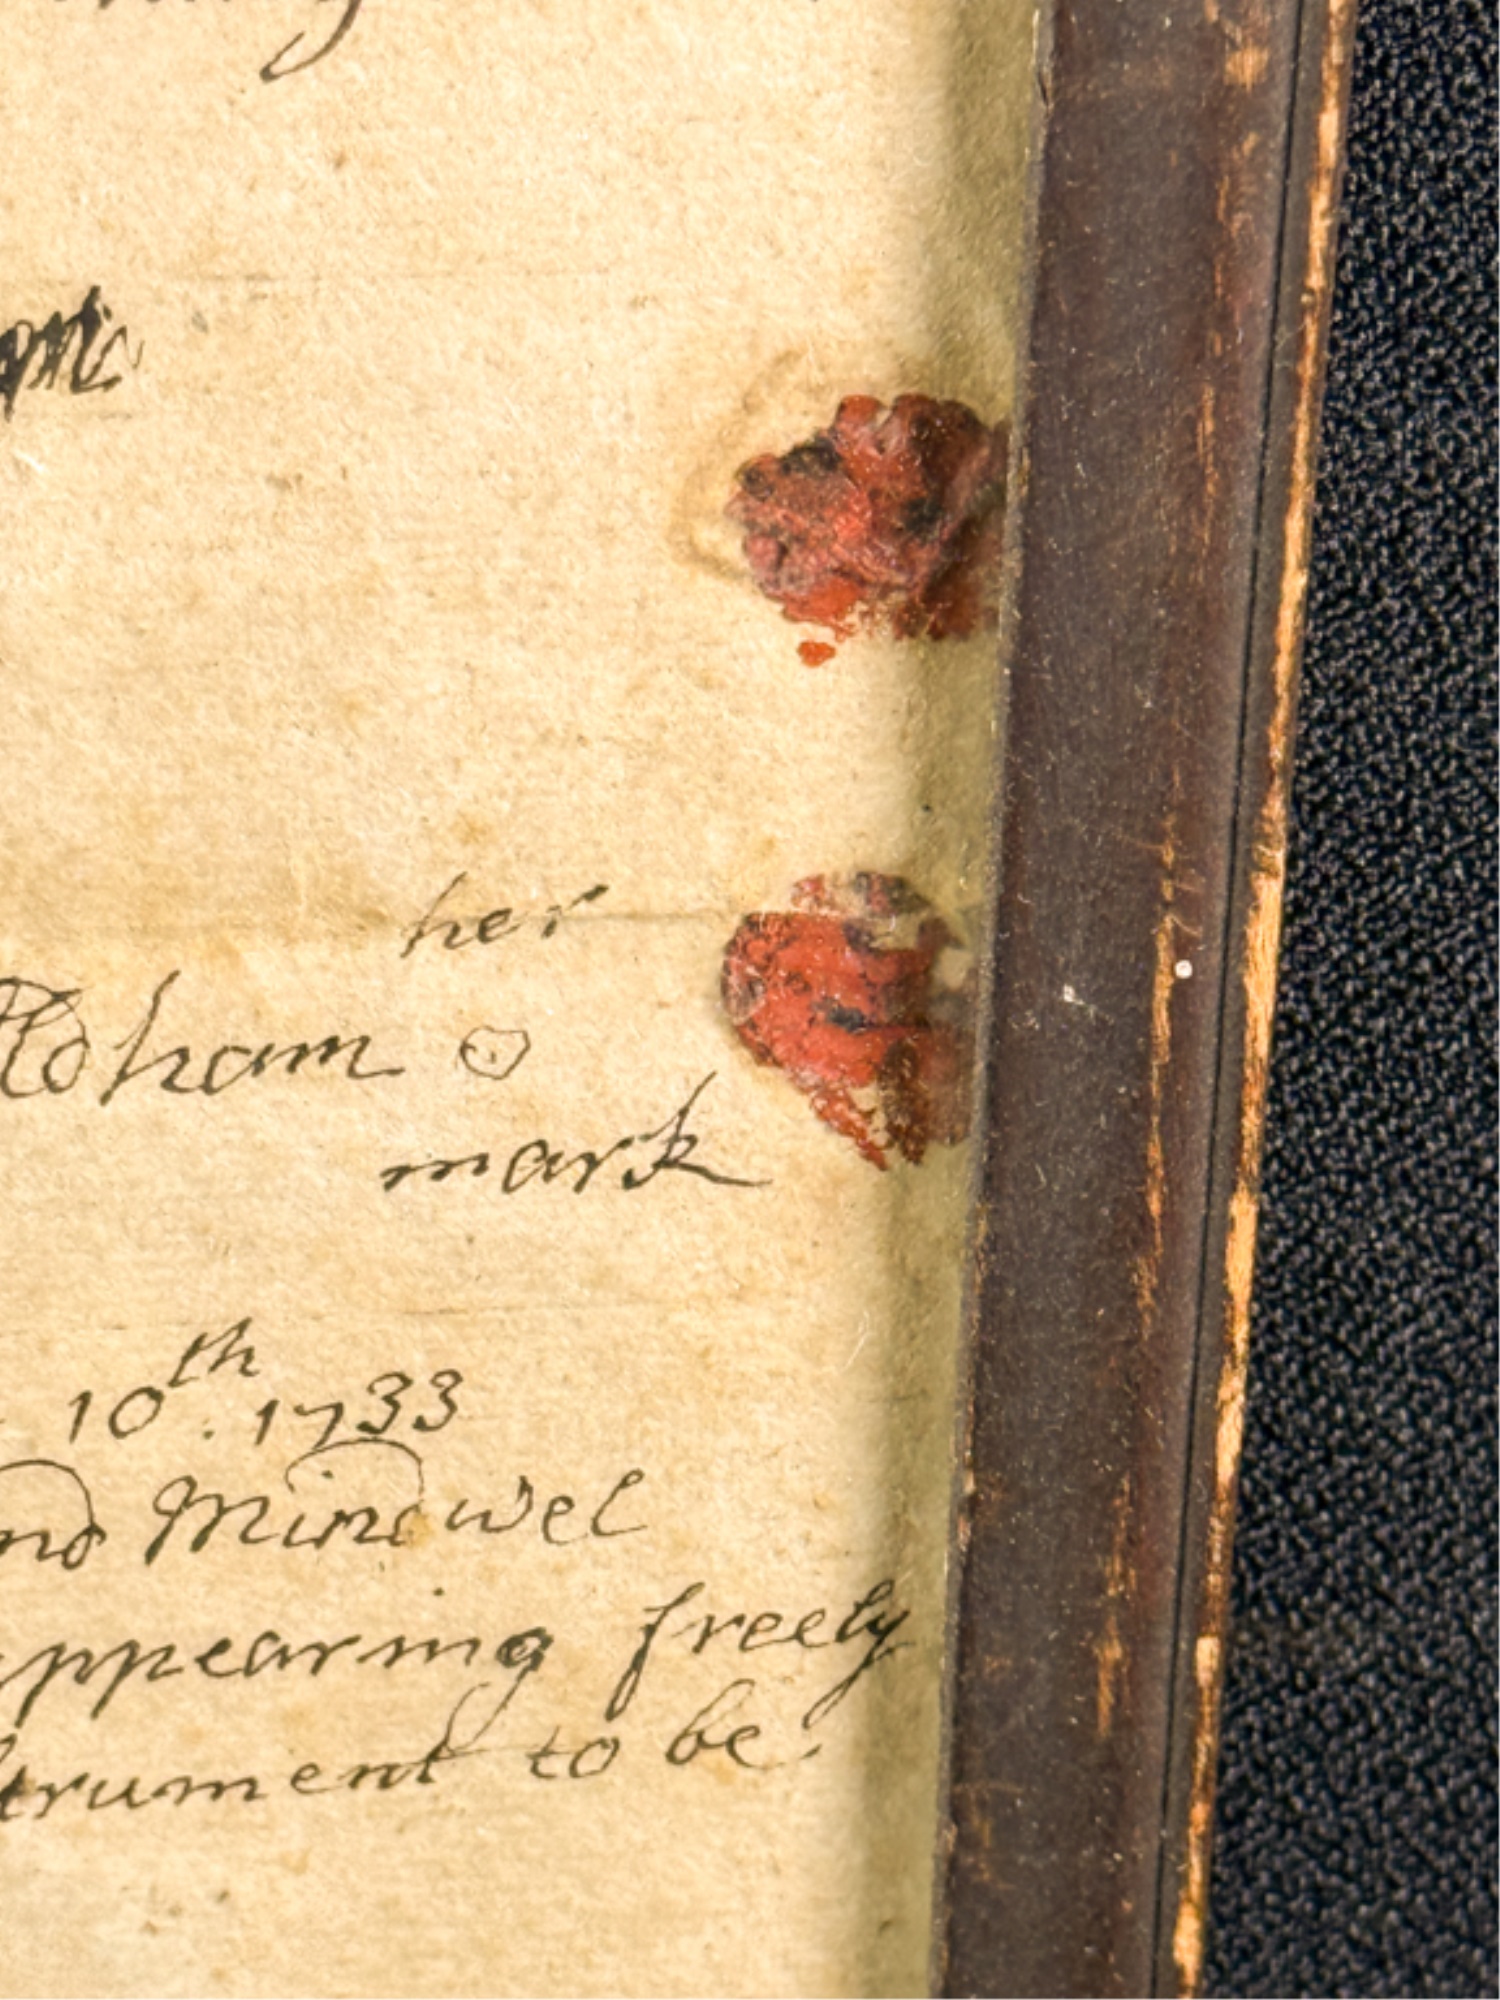 her
Oldham o
mark
10th. 1733
and Mindwel
appearing freely
strument to be